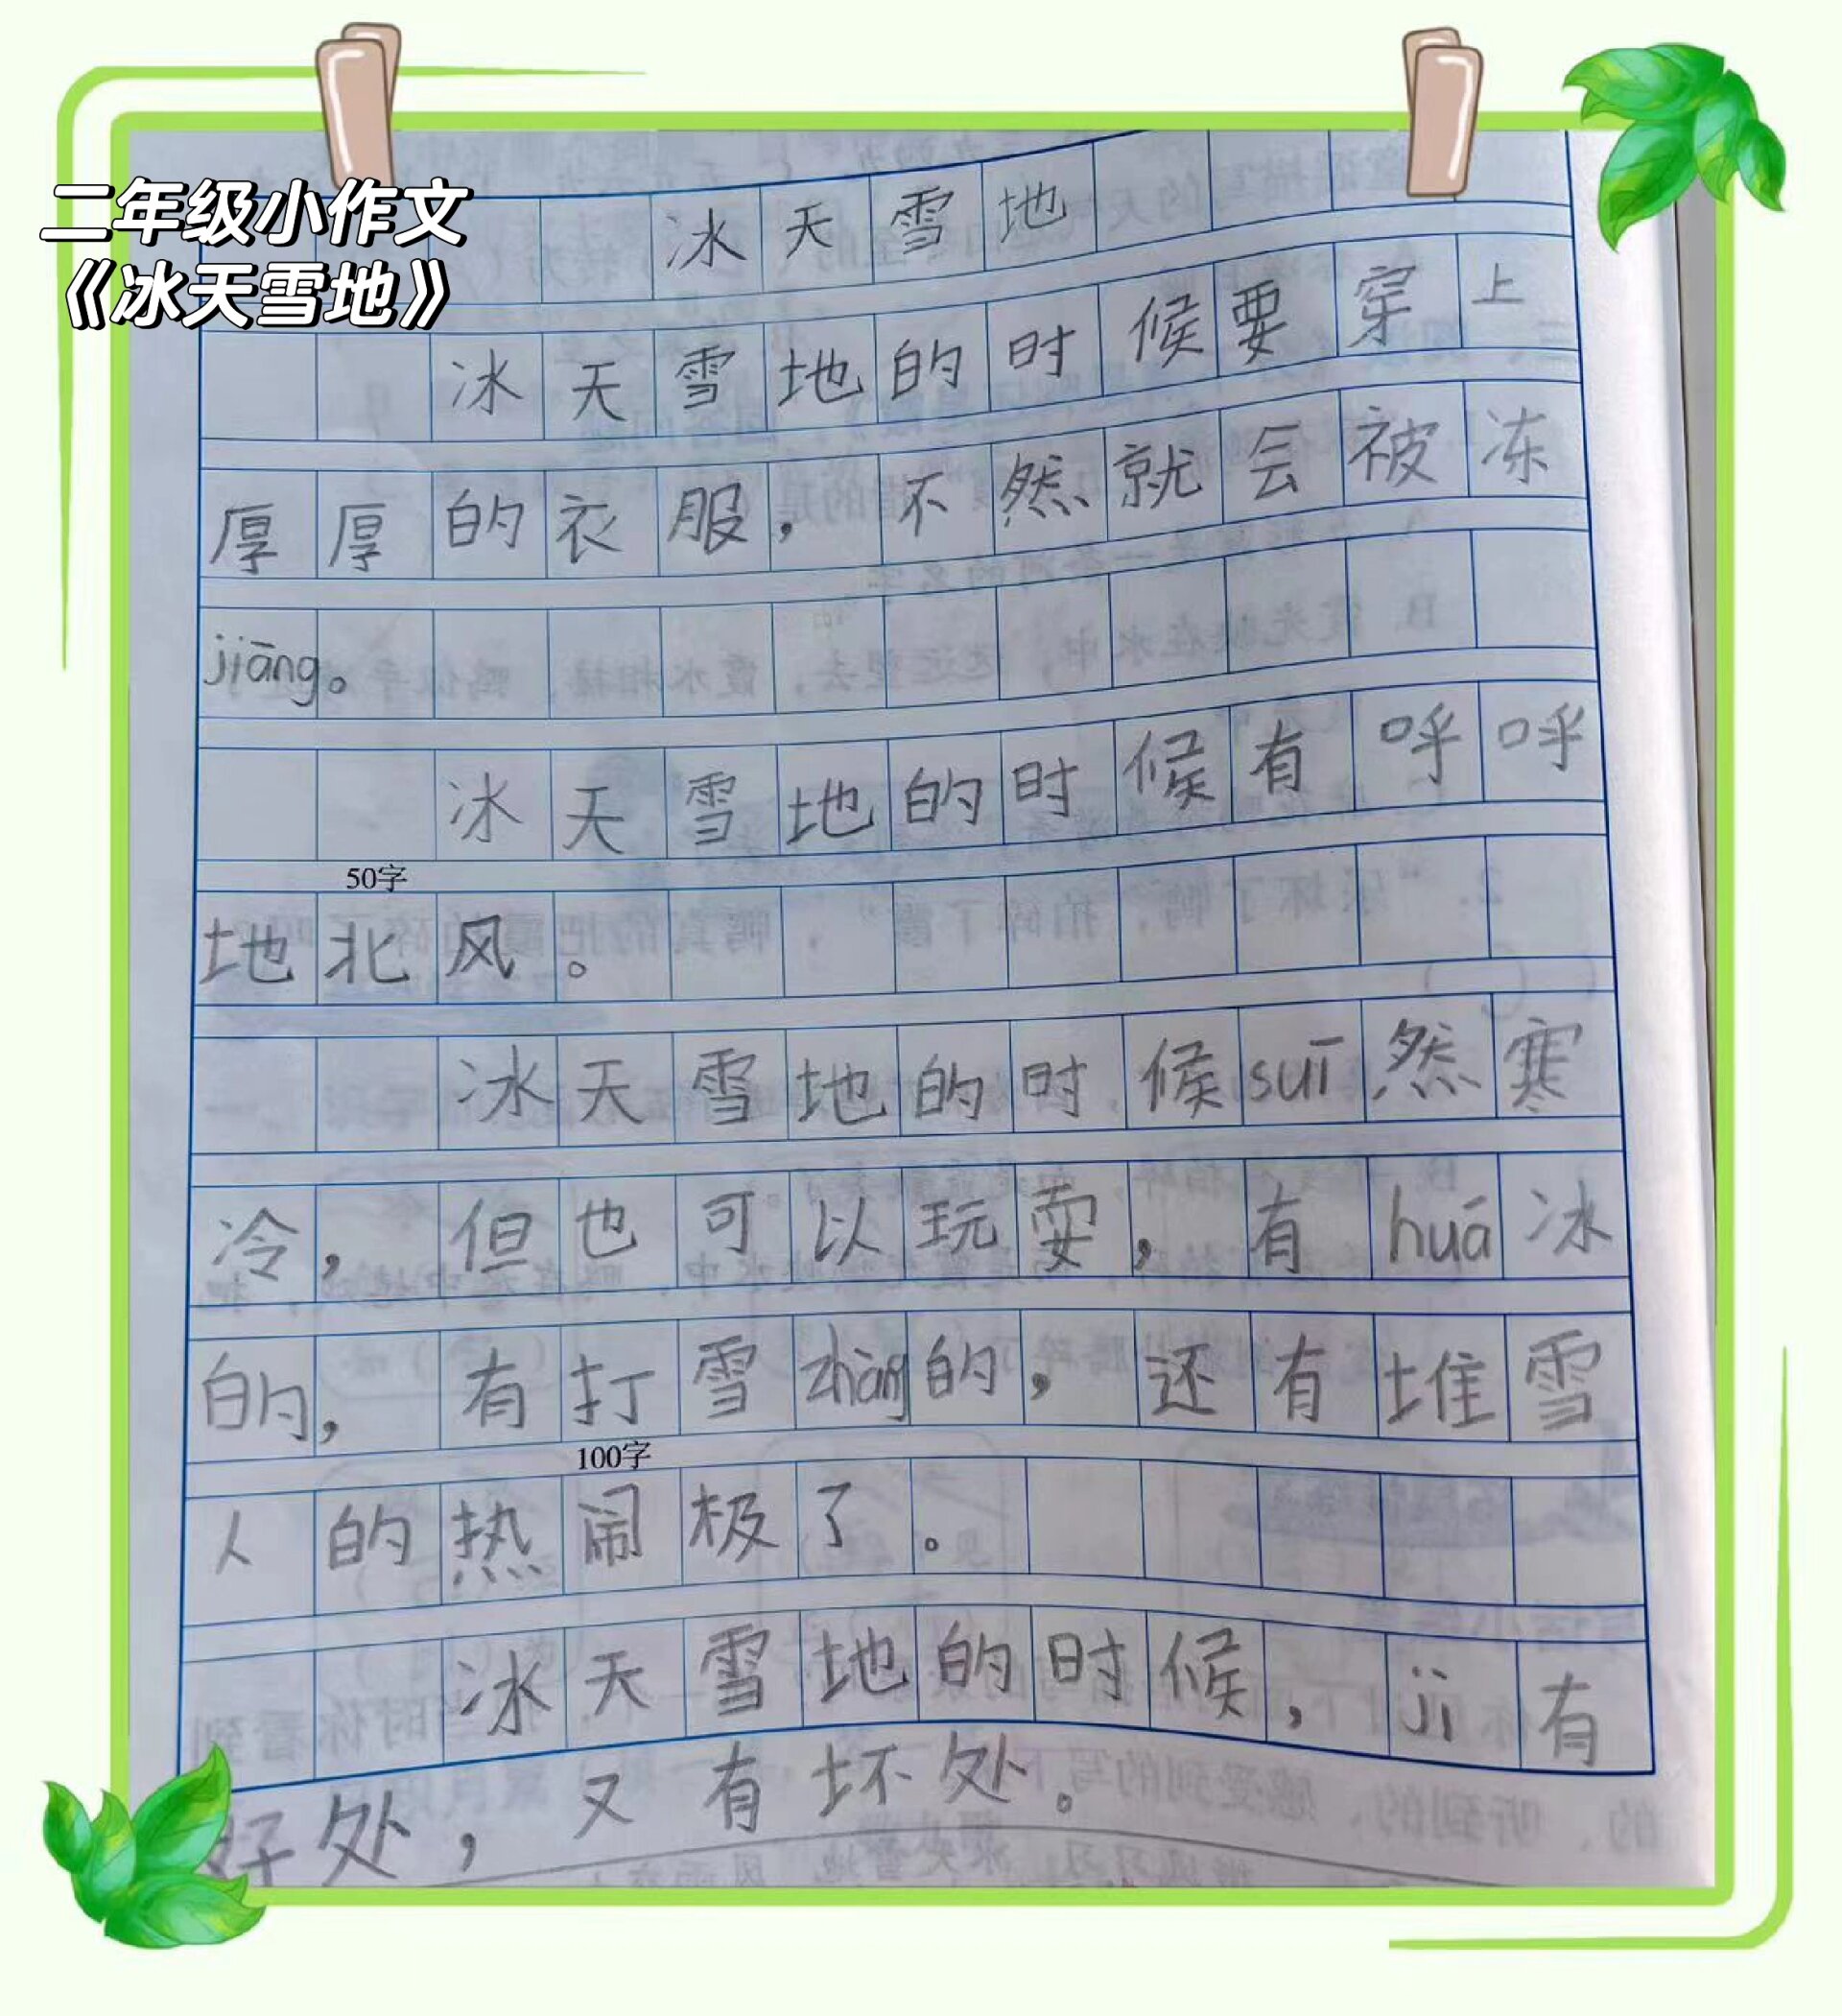 二年级小作文
《冰天雪地》
冰天雪地
冰天雪地的时候要穿上
厚厚的衣服，不然就会被冻
jiāng。
冰天雪地的时候有呼呼
50字
地北风。
冰天雪地的时候suī然寒
冷，但也可以玩耍，有huá冰
的，有打雪zhàng的，还有堆雪
100字
人的热闹极了。
冰天雪地的时候，jì有
好处，又有坏处。